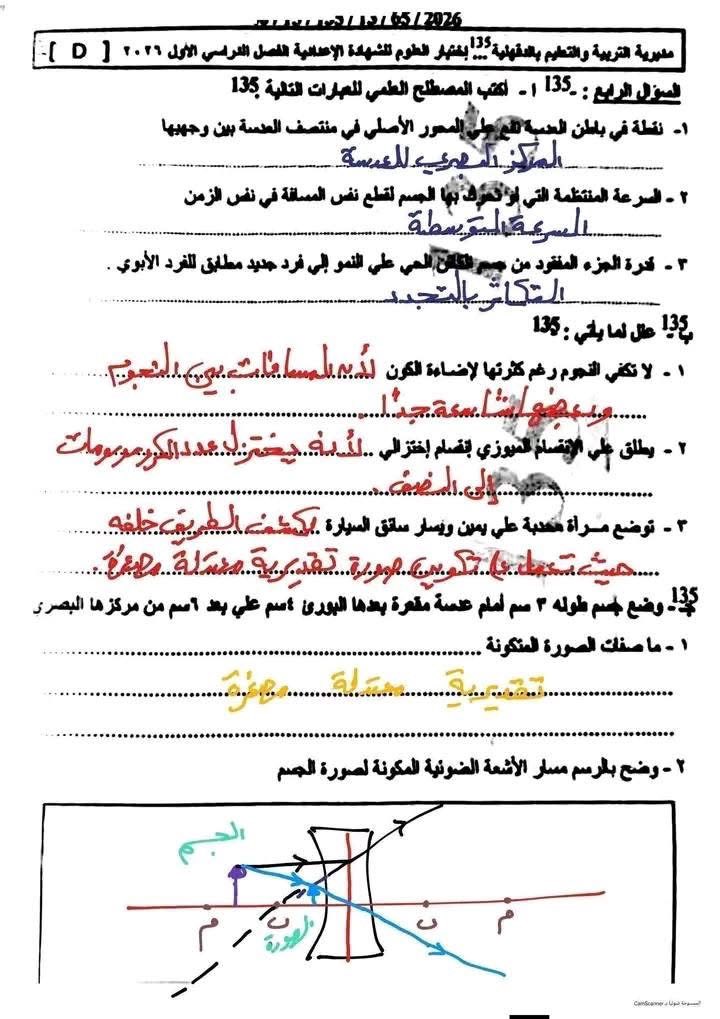 2026 / 65 / 13 / 135
مديرية التربية والتعليم بالدقهلية ...135 إختبار العلوم للشهادة الإعدادية الفصل الدراسي الأول ٢٠٢٦ [ D ] -
السؤال الرابع : -135 ١ - أكتب المصطلح العلمي للعبارات التالية 135
١- نقطة في باطن العدسة تقع علي المحور الأصلي في منتصف العدسة بين وجهيها
المركز البصري للعدسة
٢ - السرعة المنتظمة التي لو تحرك بها الجسم لقطع نفس المسافة في نفس الزمن
السرعة المتوسطة
٣ - قدرة الجزء المفقود من جسم الكائن الحي علي النمو إلي فرد جديد مطابق للفرد الأبوي .
التكاثر بالتجدد
ب- 135 علل لما يأتي : 135
١ - لا تكفي النجوم رغم كثرتها لإضاءة الكون لأن المسافات بين النجوم
وبعضها شاسعة جداً .
٢ - يطلق علي الإنقسام الميوزي إنقسام إختزالي لأنه يختزل عدد الكروموسومات
إلى النصف .
٣ - توضع مرأة محدبة علي يمين ويسار سائق السيارة لكشف الطريق خلفه
حيث تعمل على تكوين صورة تقديرية معتدلة مصغرة .
135 جـ - وضع جسم طوله ٣ سم أمام عدسة مقعرة بعدها البورئ ٤سم علي بعد ٦سم من مركزها البصري
١ - ما صفات الصورة المتكونة
تقديرية معتدلة مصغرة
٢ - وضح بالرسم مسار الأشعة الضوئية المكونة لصورة الجسم
الجسم
م ن ن م
الصورة
الممسوحة ضوئيا بـ CamScanner